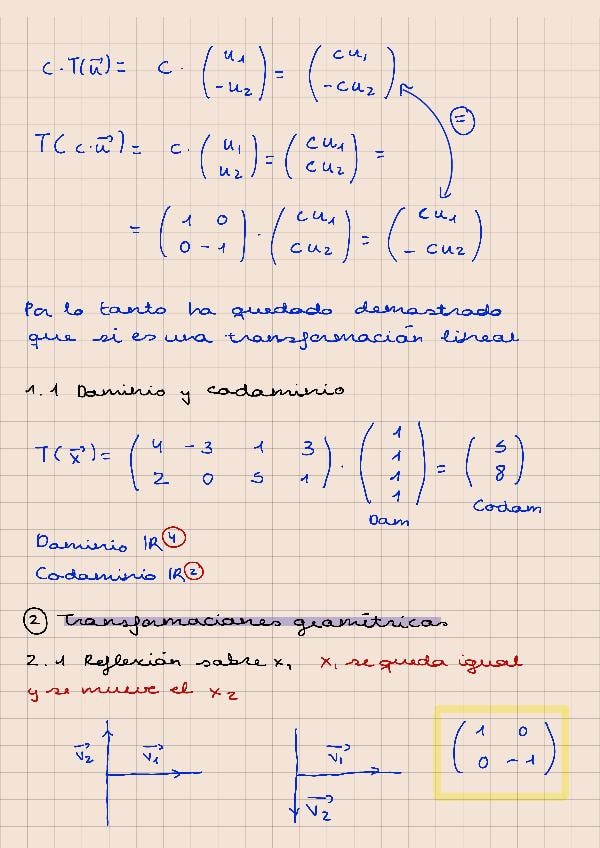 c · T(u⃗) = c · (u₁ -u₂) = (cu₁ -cu₂)
=
T(c·u⃗) = c · (u₁ u₂) = (cu₁ cu₂) =
= (1 0 0 -1) · (cu₁ cu₂) = (cu₁ -cu₂)
Por lo tanto ha quedado demostrado
que si es una transformación lineal
1.1 Dominio y codominio
T(x⃗) = (4 -3 1 3 2 0 5 1) · (1 1 1 1) = (5 8)
Dom Codom
Dominio IR④
Codominio IR②
② Transformaciones geométricas
2.1 Reflexión sobre x₁ x₁ se queda igual
y se mueve el x₂
v⃗₂ v⃗₁ v⃗₁ v⃗₂ (1 0 0 -1)